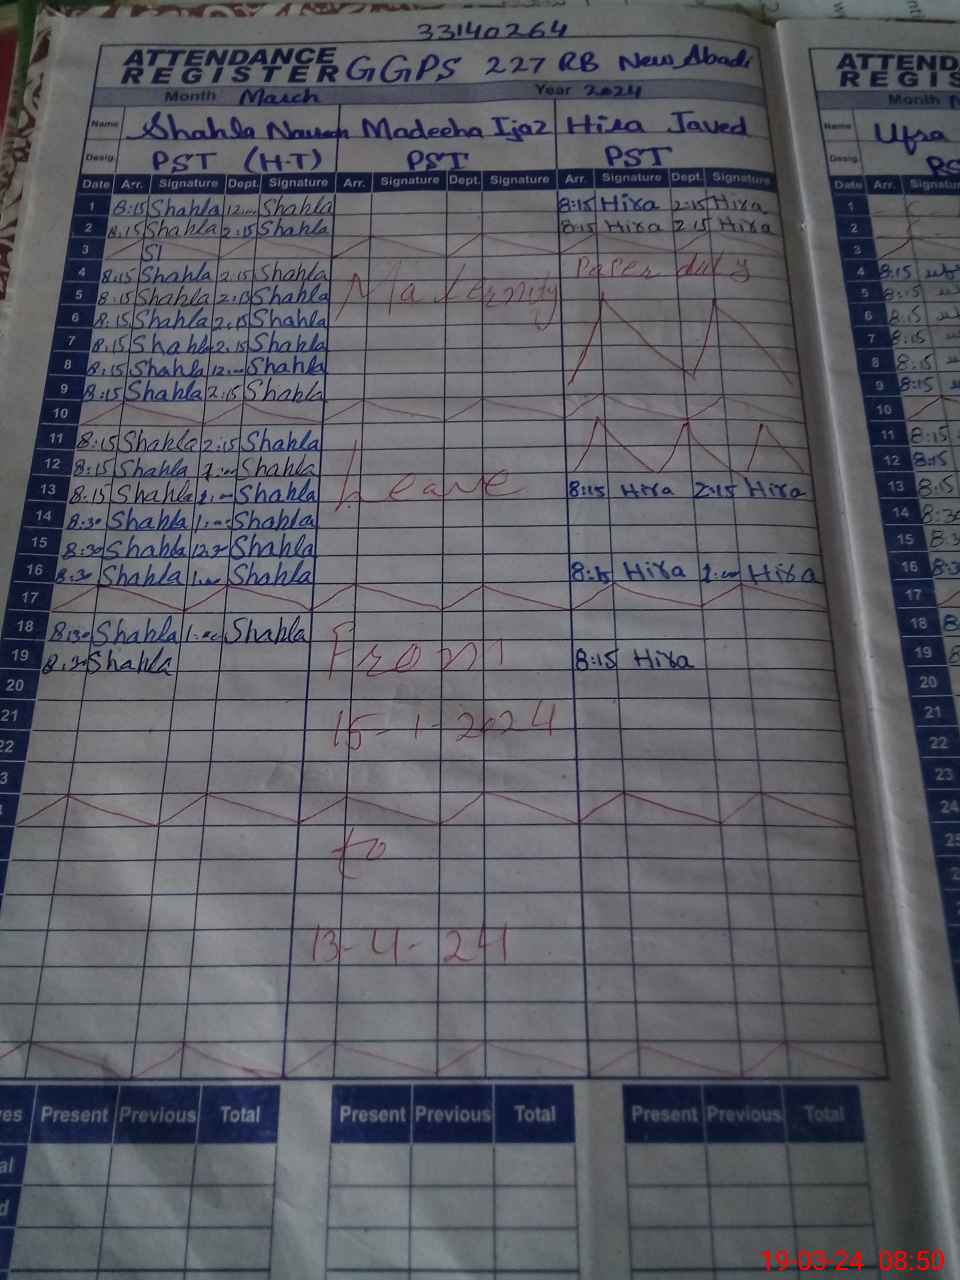 33140264
ATTENDANCE REGISTER GGPS 227 RB New Abadi
Month March Year 2024
Name Shahla Madeeha Ijaz Hira Javed
Desig. PST (H-T) PST PST
Date Arr. Signature Dept. Signature Arr. Signature Dept. Signature Arr. Signature Dept. Signature
1 8:15 Shahla 12 Shahla 8:15 Hira 2:15 Hira
2 8:15 Shahla 2:15 Shahla 8:15 Hira 2:15 Hira
3
4 8:15 Shahla 2:15 Shahla Paper duty
5 8:15 Shahla 2:15 Shahla Maternity
6 8:15 Shahla 2:15 Shahla
7 8:15 Shahla 2:15 Shahla
8 8:15 Shahla 12 Shahla
9 8:15 Shahla 2:15 Shahla
10
11 8:15 Shahla 2:15 Shahla
12 8:15 Shahla Shahla
13 8:15 Shahla Shahla Leave 8:15 Hira 2:15 Hira
14 8:30 Shahla Shahla
15 8:30 Shahla Shahla
16 8:30 Shahla Shahla 8:15 Hira Hira
17
18 8:30 Shahla Shahla
19 8:30 Shahla From 8:15 Hira
20
21 15-1-2024
22
23
24
to
13-4-24
Present Previous Total Present Previous Total Present Previous Total
ATTEND
REGIS
Month
Name Ufra
Desig.
Date Arr. Signatu
1
2
3
4 8:15
5 8:15
6 8:15
7 8:15
8 8:15
9 8:15
10
11 8:15
12 8:15
13 8:15
14 8:30
15
16
17
18
19
20
21
22
23
24
19-03-24 08:50